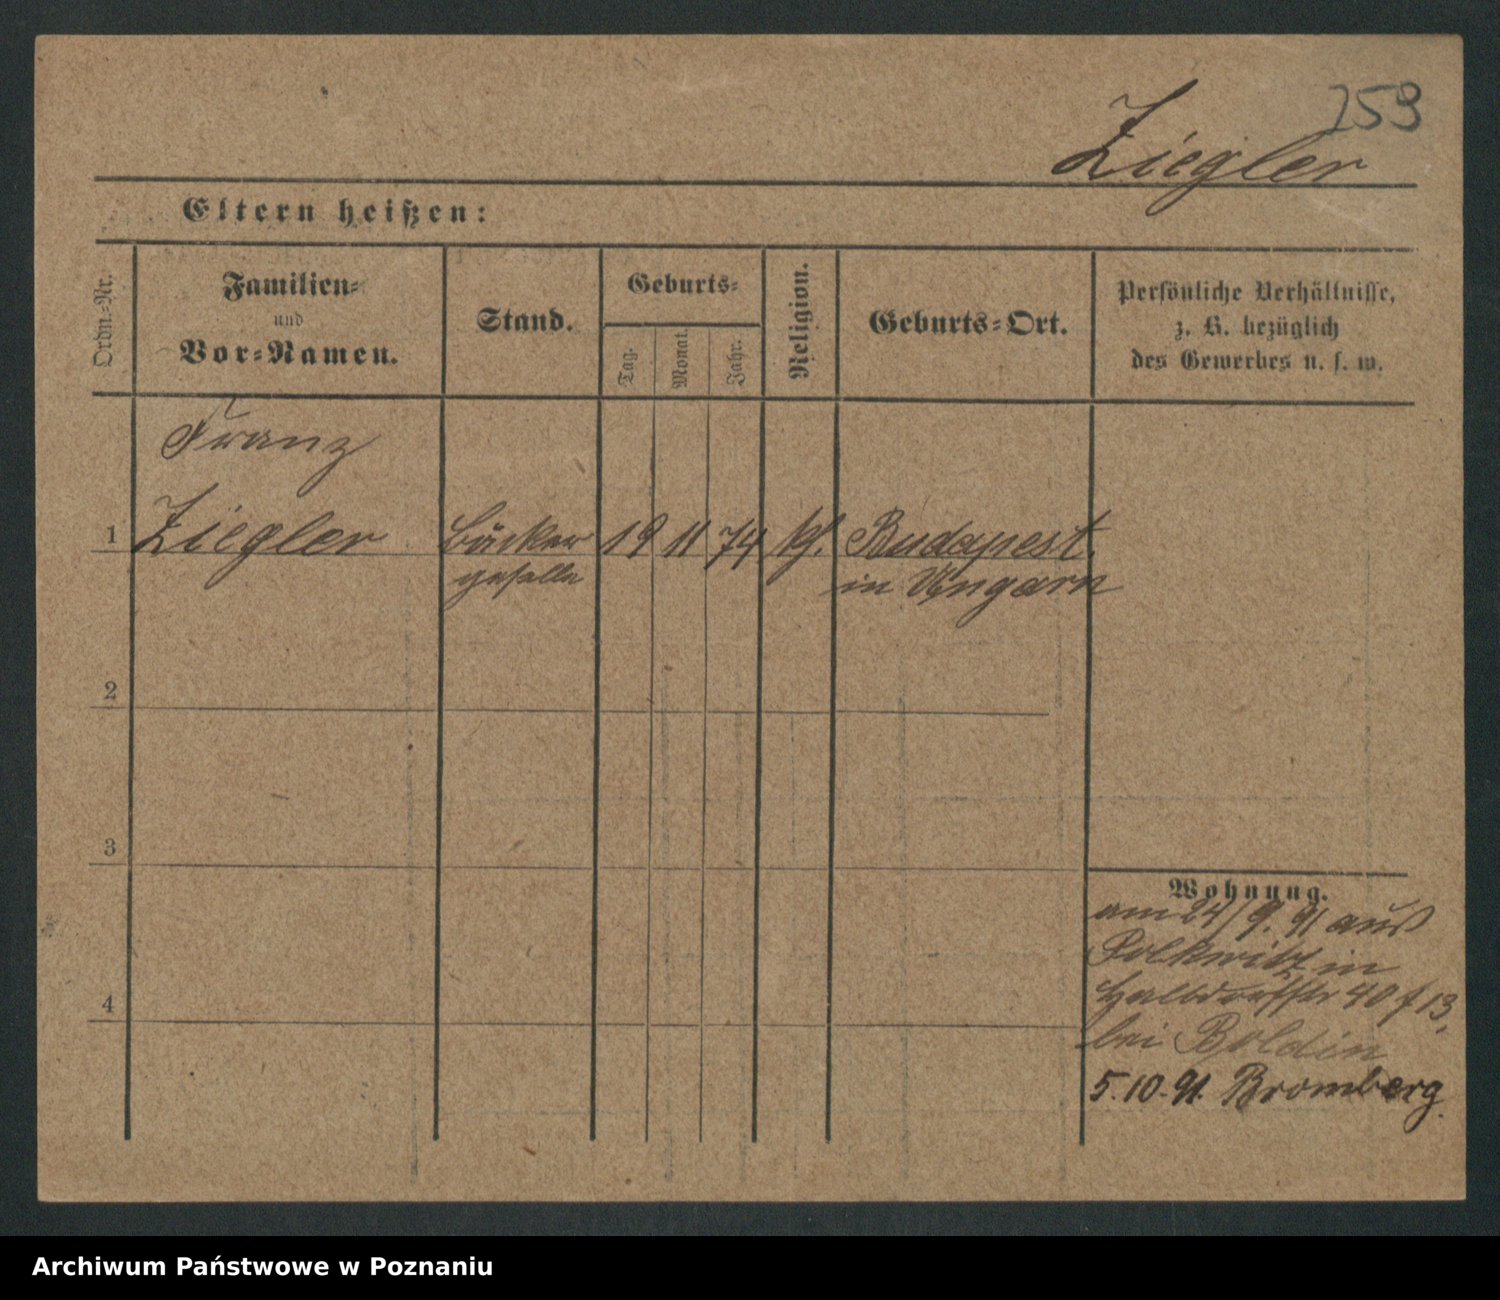 259
Ziegler
Eltern heißen:
Ordn.-Nr.
Familien-
und
Vor-Namen.
Stand.
Geburts-
Tag.
Monat.
Jahr.
Religion.
Geburts-Ort.
Persönliche Verhältnisse,
z. B. bezüglich
des Gewerbes u. s. w.
Franz
1 Ziegler Bäcker 19 11 74 Budapest.
geselle in Ungarn
2
3
4
Wohnung.
am 24/9. 91 aus
Polkwitz in
Halbdorfstr 40 13,
bei Boldin
5.10.91. Bromberg.
Archiwum Państwowe w Poznaniu